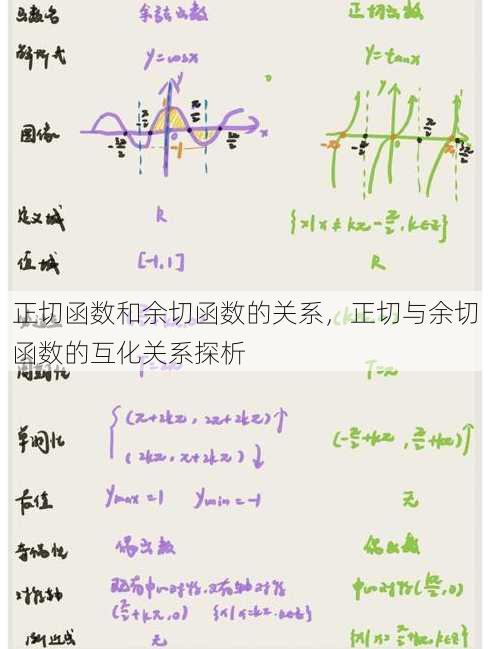 函数名 余弦函数 正切函数
解析式 y=cosx y=tanx
图像 y x 0 -1 -3π/2 -π/2 π/2 3π/2 -π -π/2 0 π/2 π 3π/2
定义域 R {x|x≠kπ-π/2,k∈Z}
值域 [-1,1] R
正切函数和余切函数的关系，正切与余切
函数的互化关系探析
周期性 T=2π T=π
单调性 (π+2kπ, 2π+2kπ)↑ (-π/2+kπ, π/2+kπ)↑
(2kπ, π+2kπ)↓
最值 ymax=1 ymin=-1 无
奇偶性 偶函数
对称轴 中心对称(kπ/2,0)
(π/2+kπ,0) {x|x=kπ,k∈Z}
渐近线 无 {x|x=π/2+kπ,k∈Z}